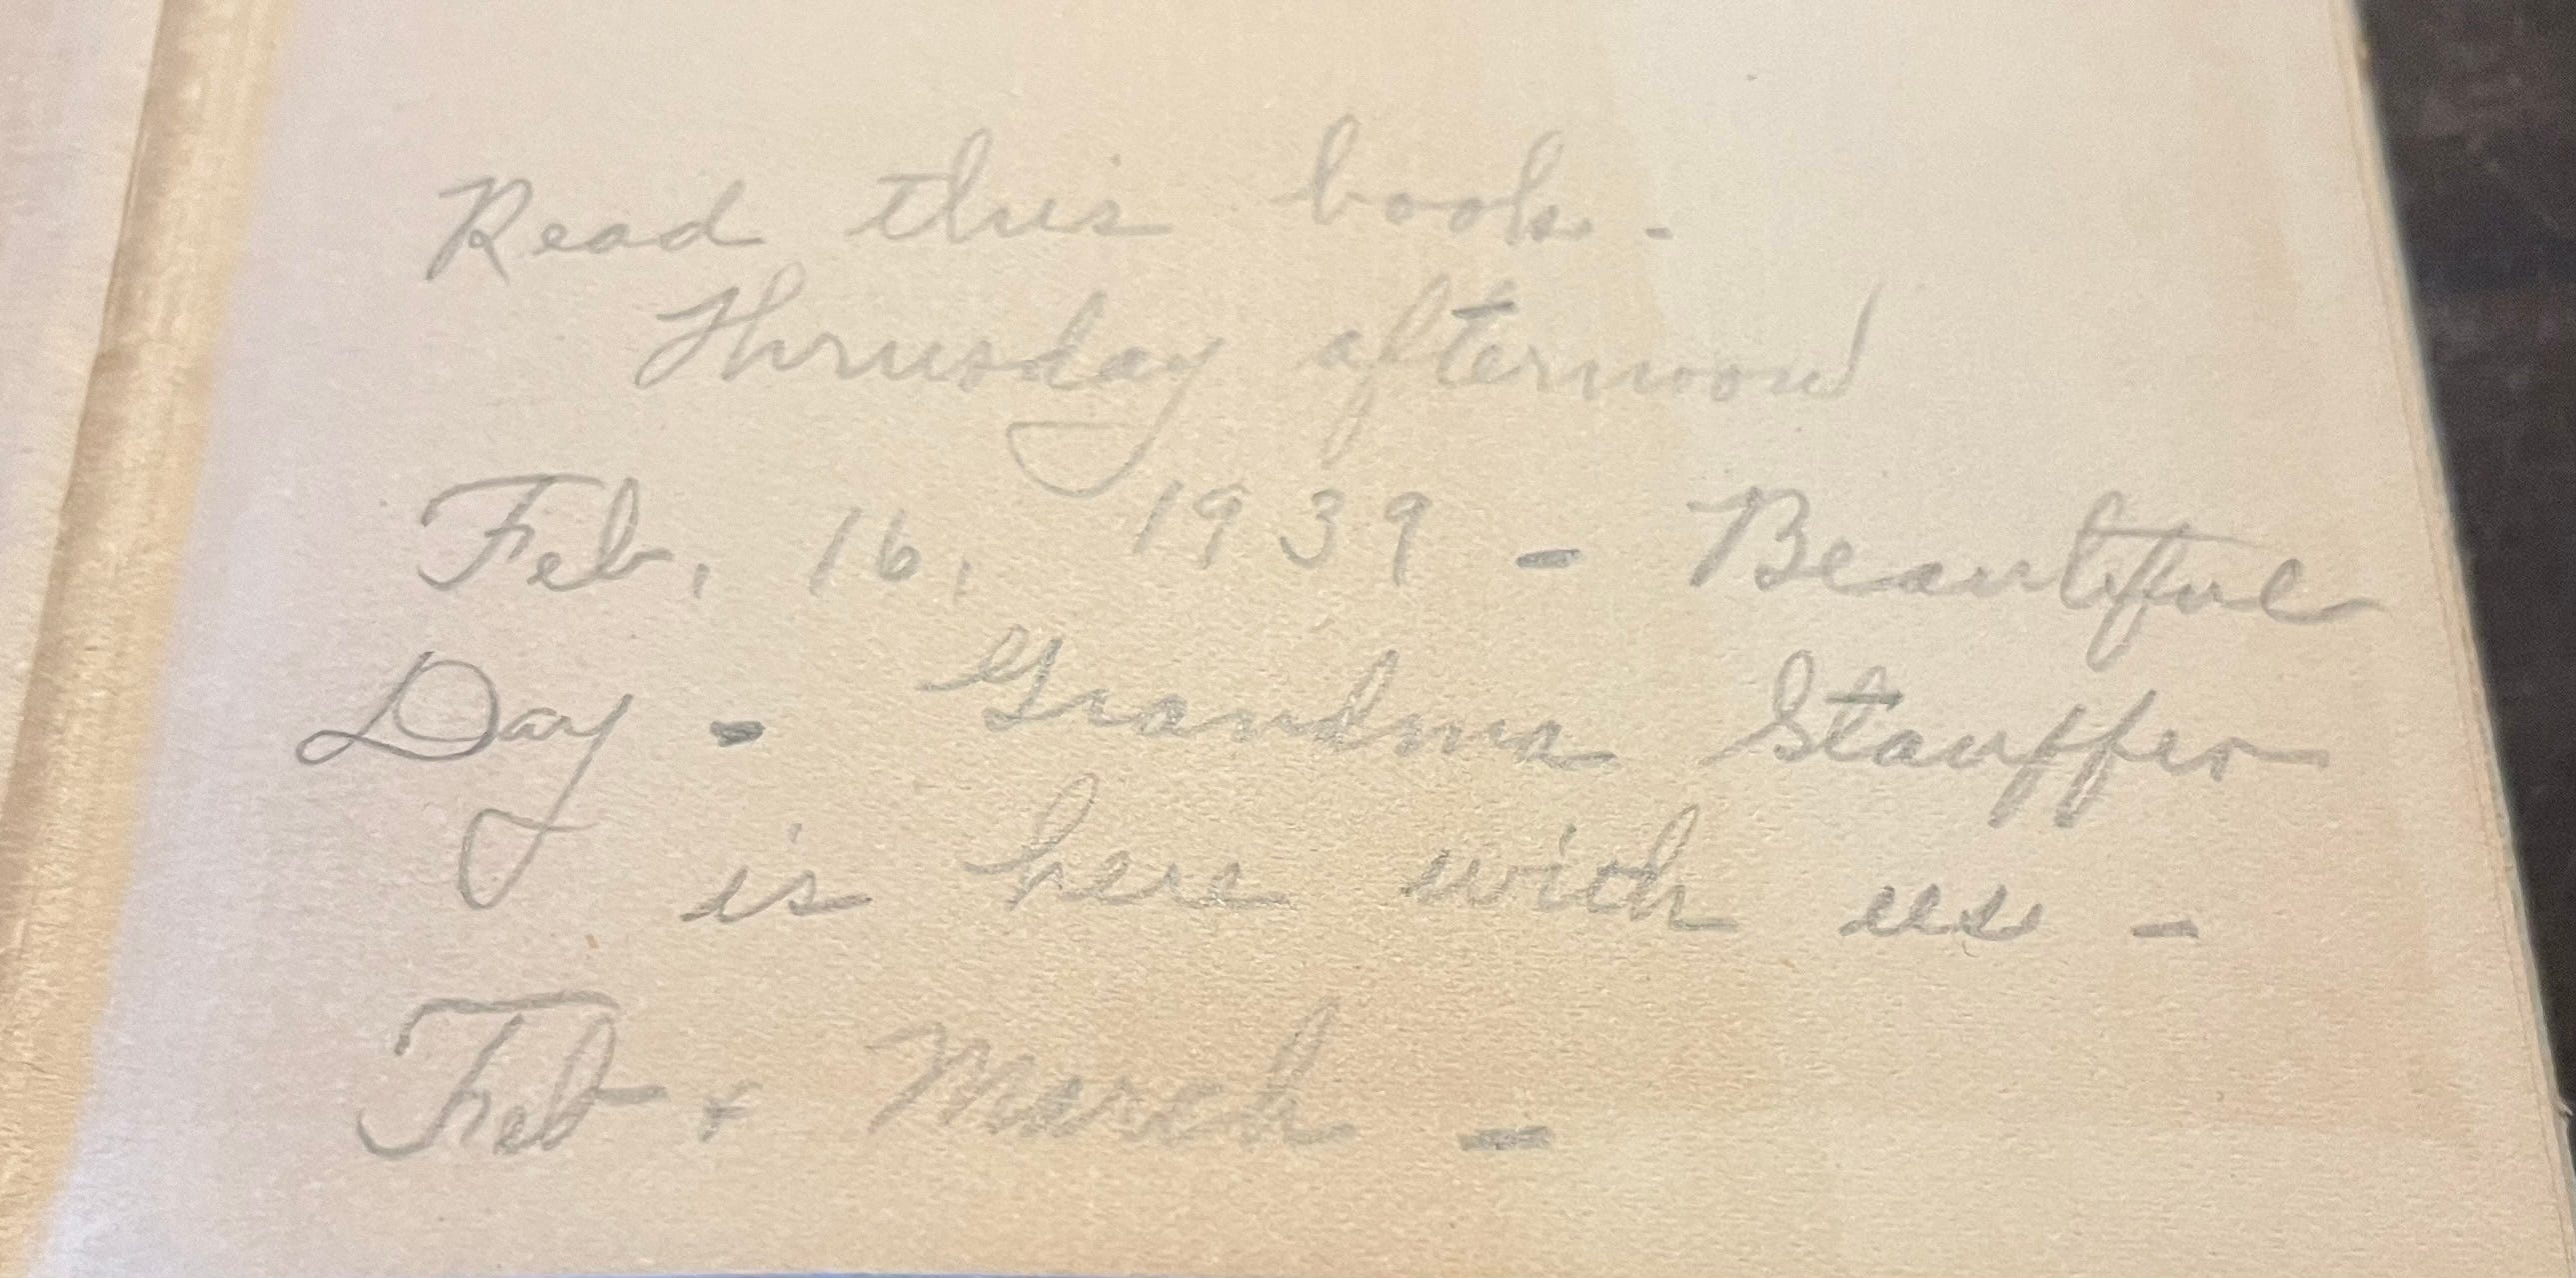 Read this book -
Thrusday afternoon
Feb, 16, 1939 - Beautiful
Day - Grandma Stauffer
is here with us -
Feb & March -